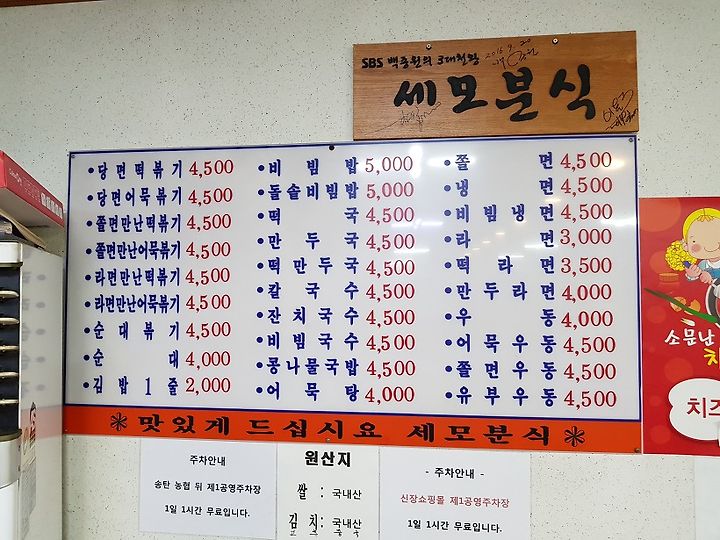 SBS 백종원의 3대천왕
2015. 9. 20
세모분식
• 당면떡볶기 4,500
• 당면어묵볶기 4,500
• 쫄면만난떡볶기 4,500
• 쫄면만난어묵볶기 4,500
• 라면만난떡볶기 4,500
• 라면만난어묵볶기 4,500
• 순대볶기 4,500
• 순대 4,000
• 김밥1줄 2,000
• 비빔밥 5,000
• 돌솥비빔밥 5,000
• 떡국 4,500
• 만두국 4,500
• 떡만두국 4,500
• 칼국수 4,500
• 잔치국수 4,500
• 비빔국수 4,500
• 콩나물국밥 4,500
• 어묵탕 4,000
• 쫄면 4,500
• 냉면 4,500
• 비빔냉면 4,500
• 라면 3,000
• 떡라면 3,500
• 만두라면 4,000
• 우동 4,000
• 어묵우동 4,500
• 쫄면우동 4,500
• 유부우동 4,500
맛있게 드십시요 세모분식
소문난
치즈
주차안내
송탄 농협 뒤 제1공영주차장
1일 1시간 무료입니다.
원산지
쌀 : 국내산
김치 : 국내산
- 주차안내 -
신장쇼핑몰 제1공영주차장
1일 1시간 무료입니다.